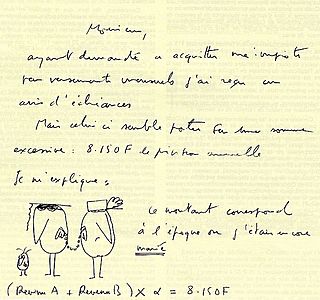 Monsieur,
ayant demandé à acquitter mes impôts
par versements mensuels j'ai reçu un
avis d'échéances
Mais celui ci semble porter sur une somme
excessive : 8.150F de fiction annuelle
Je m'explique :
ce montant correspond
à l'époque où j'étais encore
marié
(Revenu A + Revenu B) X α = 8.150F